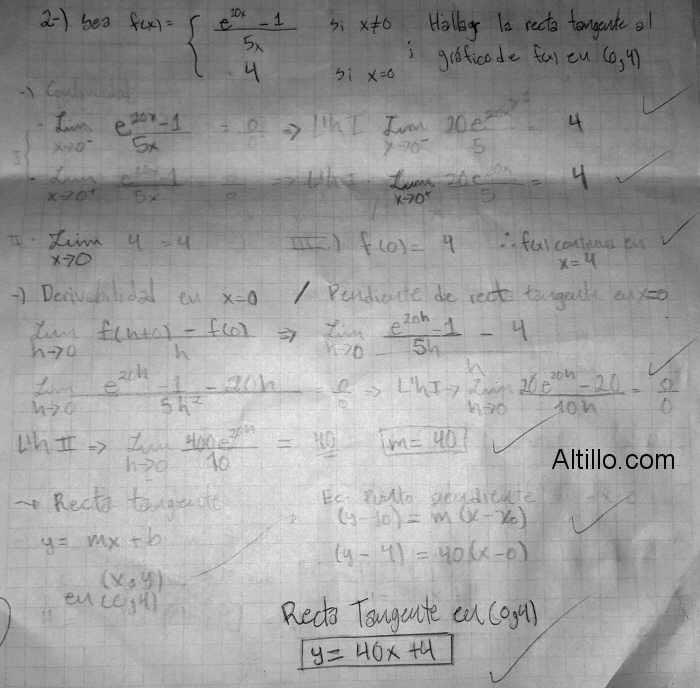 2-) Sea f(x) = { (e^20x - 1)/5x si x≠0 ; Hallar la recta tangente al
4 si x=0 gráfico de f(x) en (0,4)
-) Continuidad
I) - Lim x→0⁻ (e^20x - 1)/5x = 0/0 => L'h I Lim x→0⁻ 20e^20x/5 = 4
- Lim x→0⁺ (e^20x - 1)/5x = 0/0 => L'h I Lim x→0⁺ 20e^20x/5 = 4
II - Lim x→0 4 = 4 III) f(0) = 4 ∴ f(x) continua en
x=4
-) Derivabilidad en x=0 / Pendiente de recta tangente en x=0
Lim h→0 (f(h+0) - f(0))/h => Lim h→0 ((e^20h - 1)/5h - 4)/h
Lim h→0 (e^20h - 1 - 20h)/5h² = 0/0 => L'h I → Lim h→0 (20e^20h - 20)/10h = 0/0
L'h II => Lim h→0 400e^20h/10 = 40 m = 40
Altillo.com
→ Recta tangente Ec. punto pendiente
(y-yo) = m(x-xo)
y = mx + b
(y-4) = 40(x-0)
(x,y)
en (0,4)
Recta Tangente en (0,4)
y = 40x+4